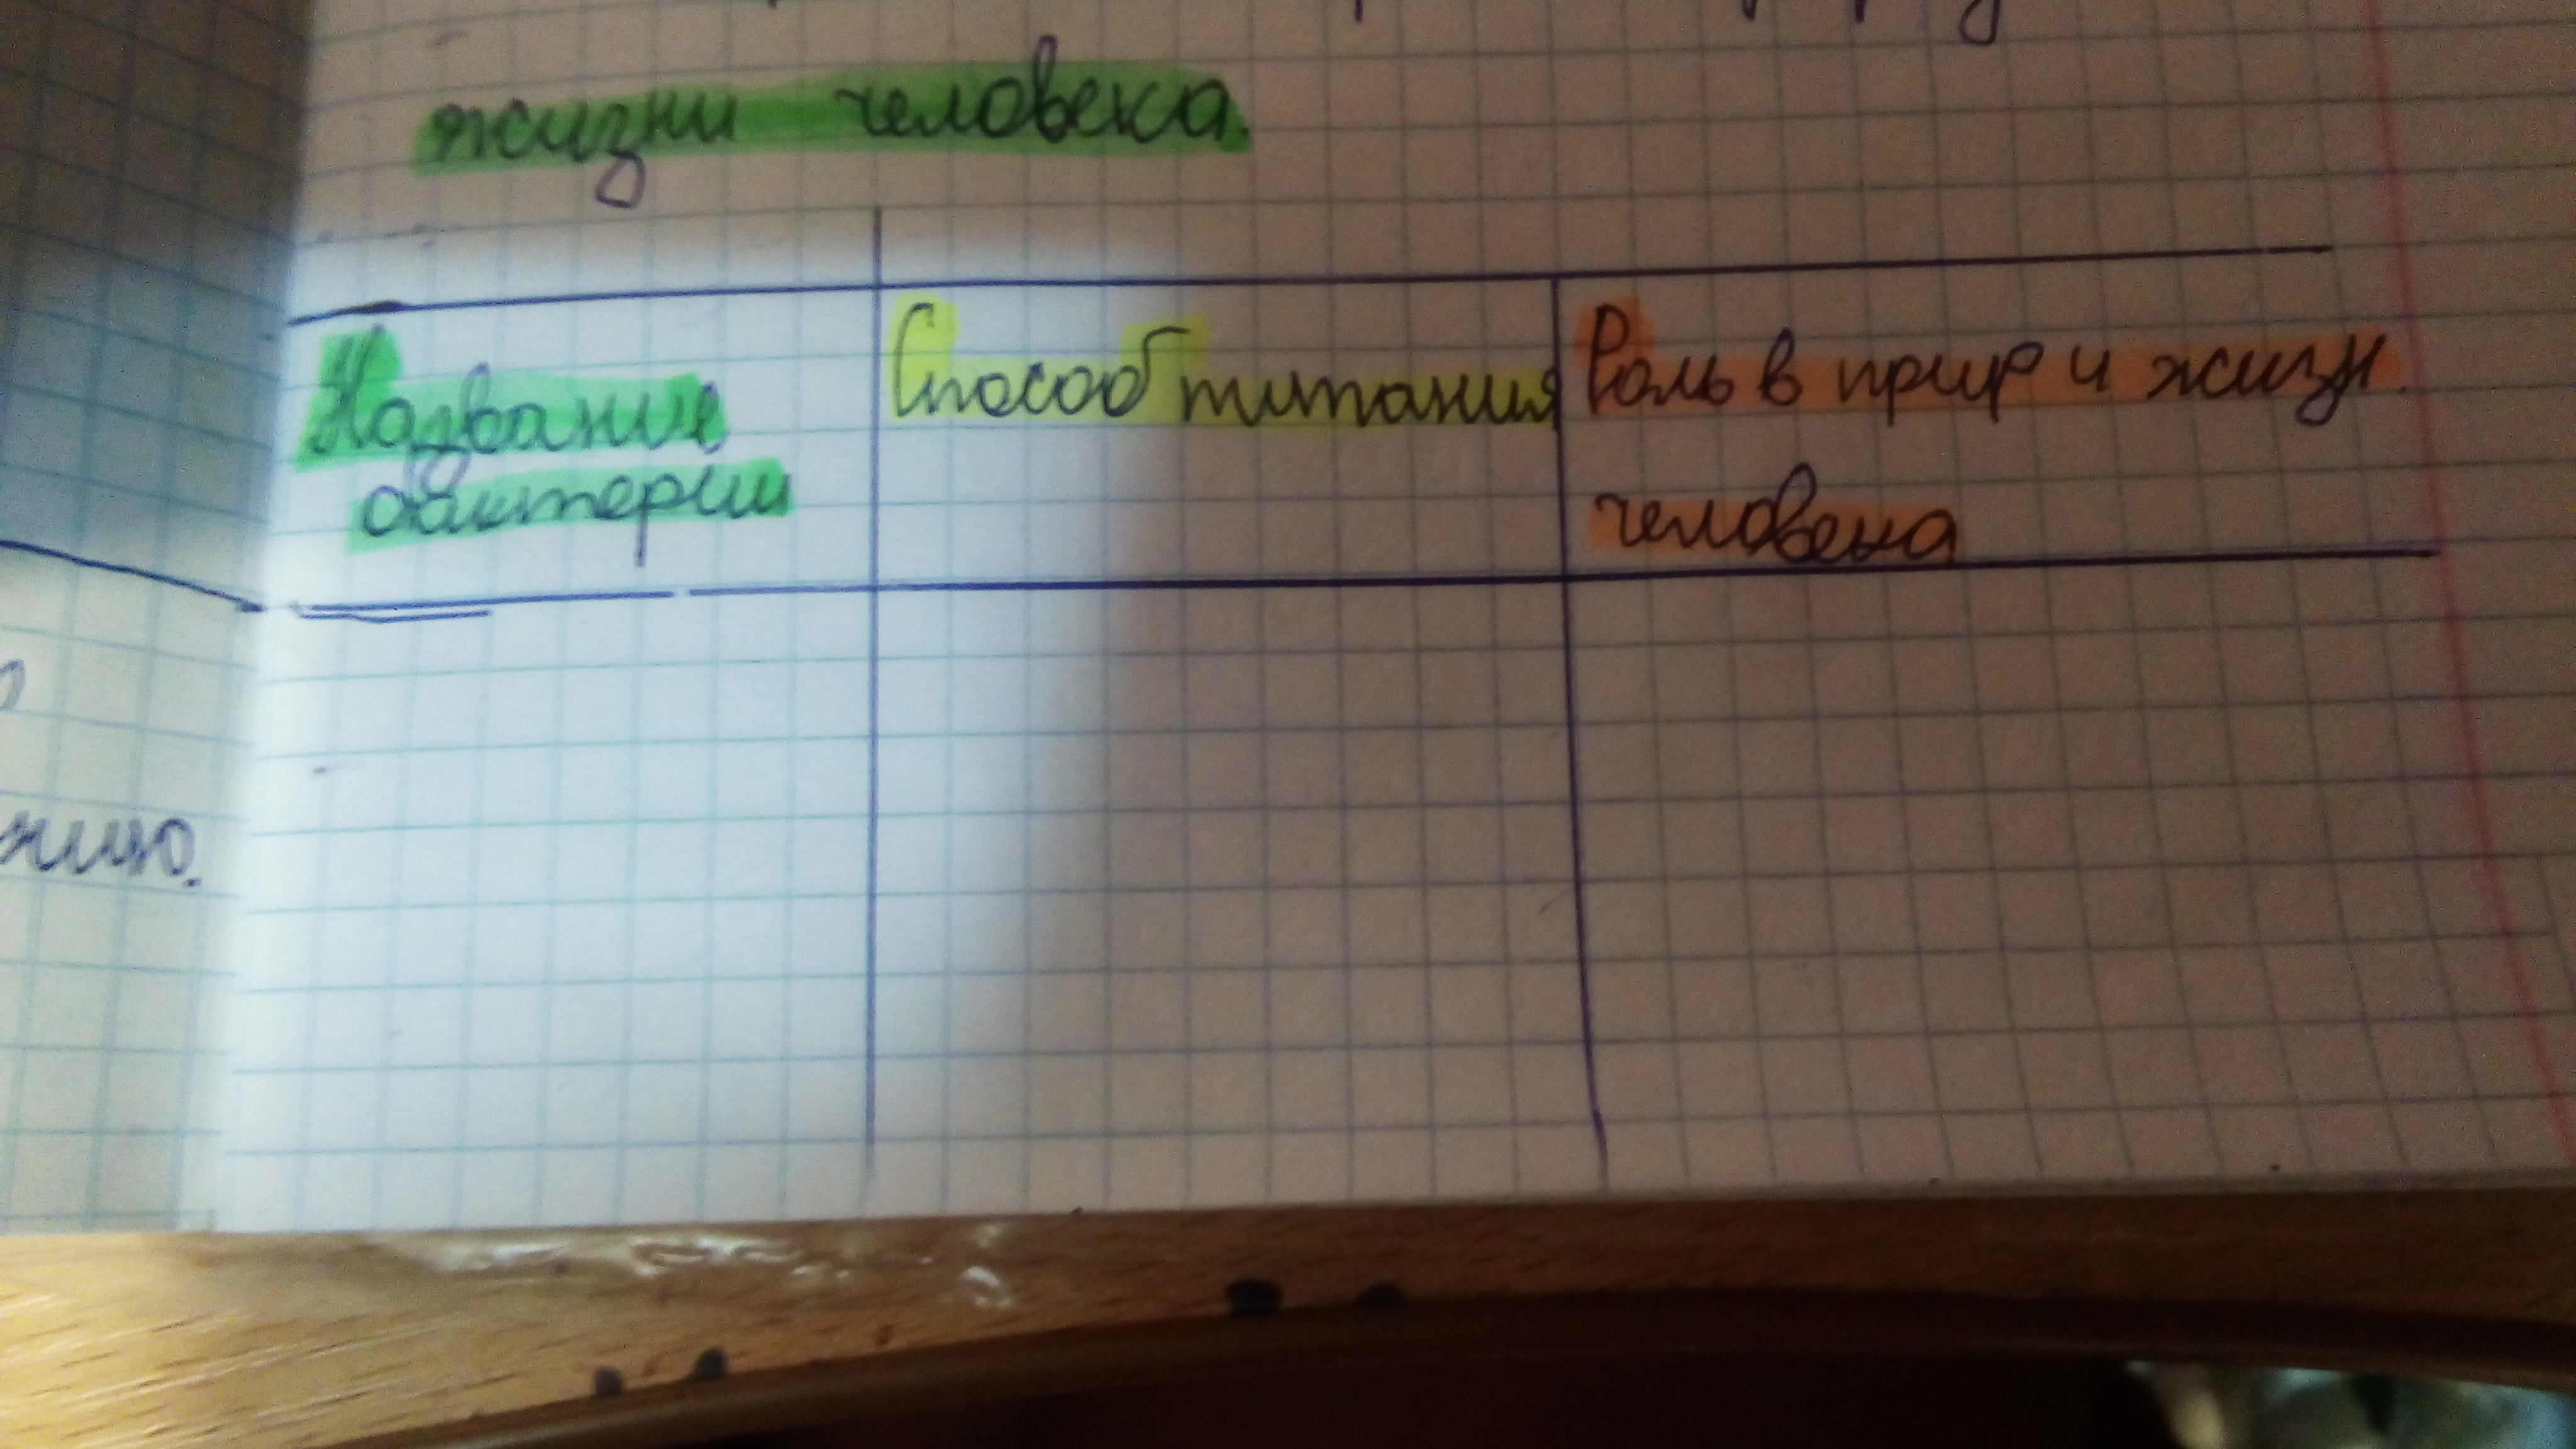 жизни человека.
Название
бактерии
Способ питания
Роль в прир и жизн.
человека